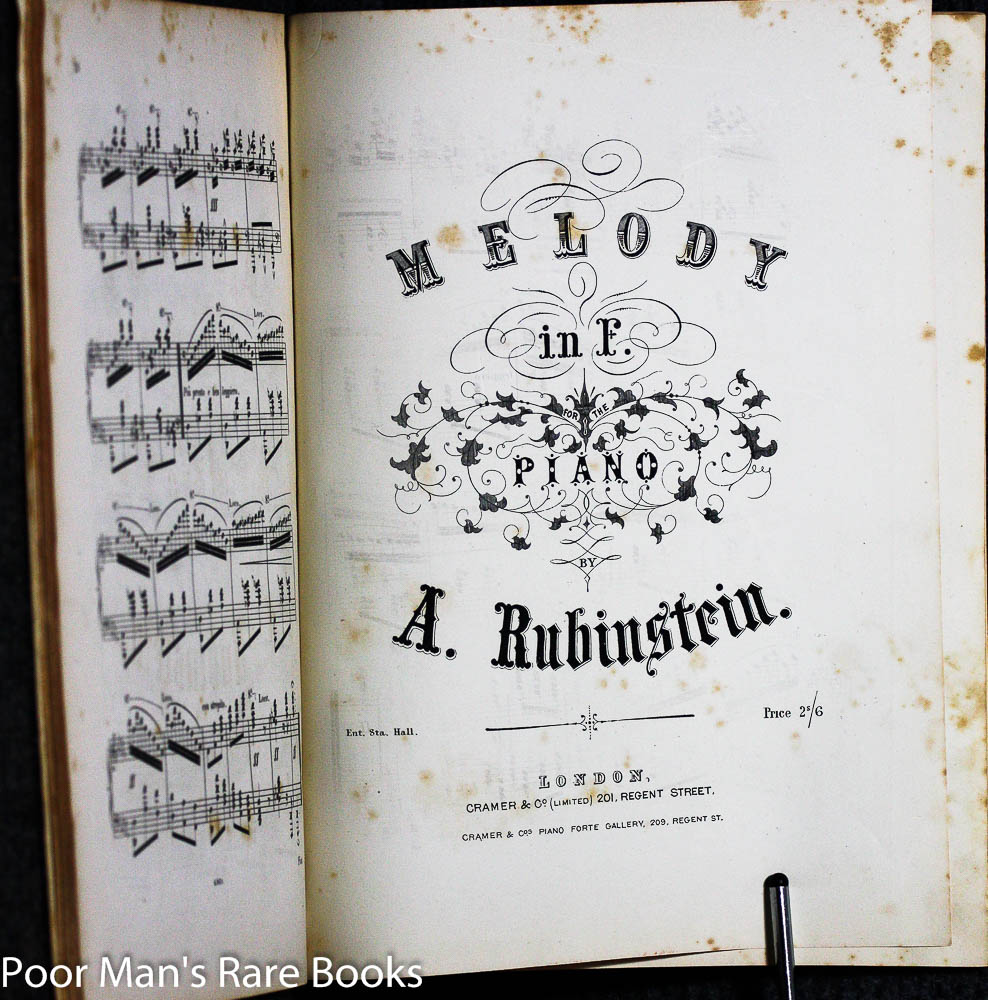 Più presto e ben leggiero.
Loco.
Loco.
Loco.
Loco.
Loco.
MELODY
in F.
FOR THE
PIANO
BY
A. Rubinstein.
Ent. Sta. Hall.
Price 2s/6
LONDON,
CRAMER & Co (LIMITED) 201, REGENT STREET,
CRAMER & Cos PIANO FORTE GALLERY, 209, REGENT ST.
Poor Man's Rare Books